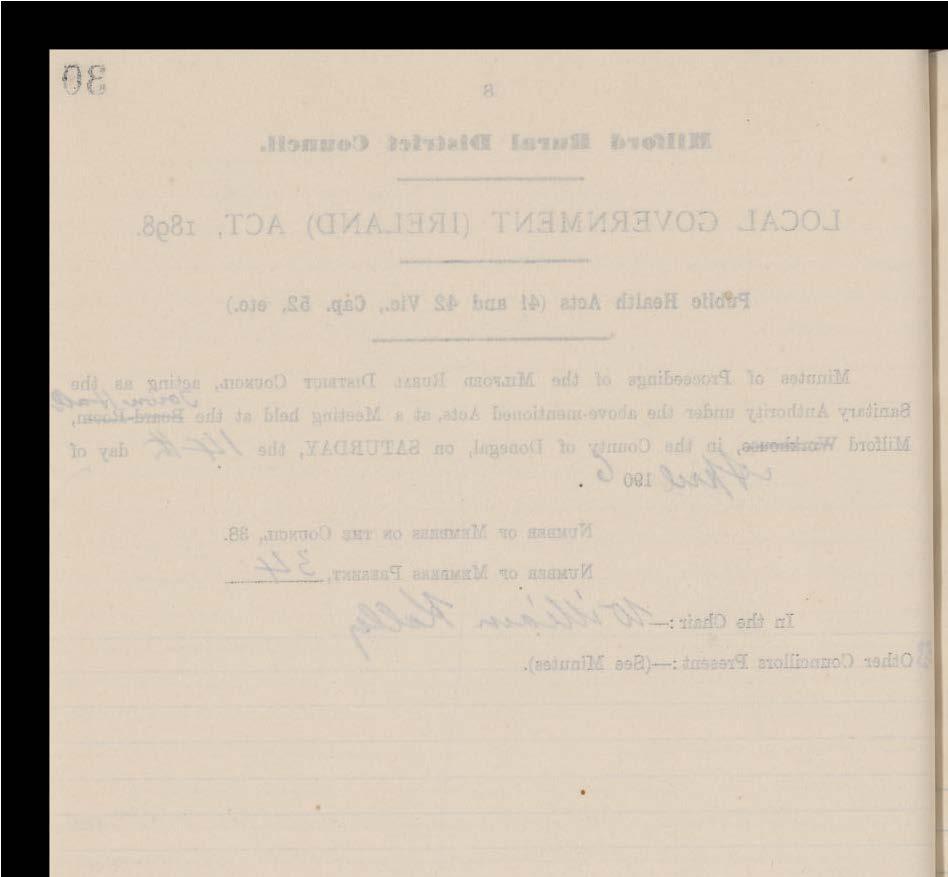 30
8
Milford Rural District Council.
LOCAL GOVERNMENT (IRELAND) ACT, 1898.
Public Health Acts (41 and 42 Vic., Cap. 52, etc.)
Minutes of Proceedings of the MILFORD RURAL DISTRICT COUNCIL, acting as the
Town Hall
Sanitary Authority under the above-mentioned Acts, at a Meeting held at the Board-Room,
Milford Workhouse, in the County of Donegal, on SATURDAY, the 14th day of
April 1906.
NUMBER OF MEMBERS ON THE COUNCIL, 38.
NUMBER OF MEMBERS PRESENT, 34
In the Chair:—William Kelly
Other Councillors Present:—(See Minutes).